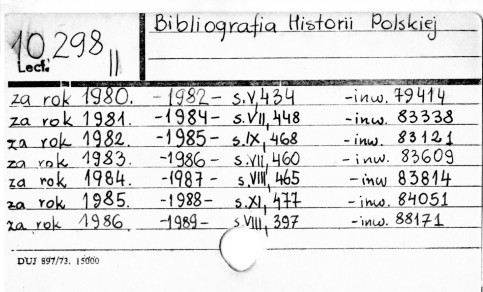 10298 II
Lect.
Bibliografia Historii Polskiej
za rok 1980. -1982- s.V,434 -inw. 79414
za rok 1981. -1984- s.VII,448 -inw. 83338
za rok 1982. -1985- s.IX,468 -inw. 83121
za rok 1983. -1986- s.VII,460 -inw. 83609
za rok 1984. -1987- s.VIII,465 -inw 83814
za rok 1985. -1988- s.XI,477 -inw. 84051
za rok 1986 -1989- s.VIII,397 -inw. 88171
DUJ 897/73. 15000